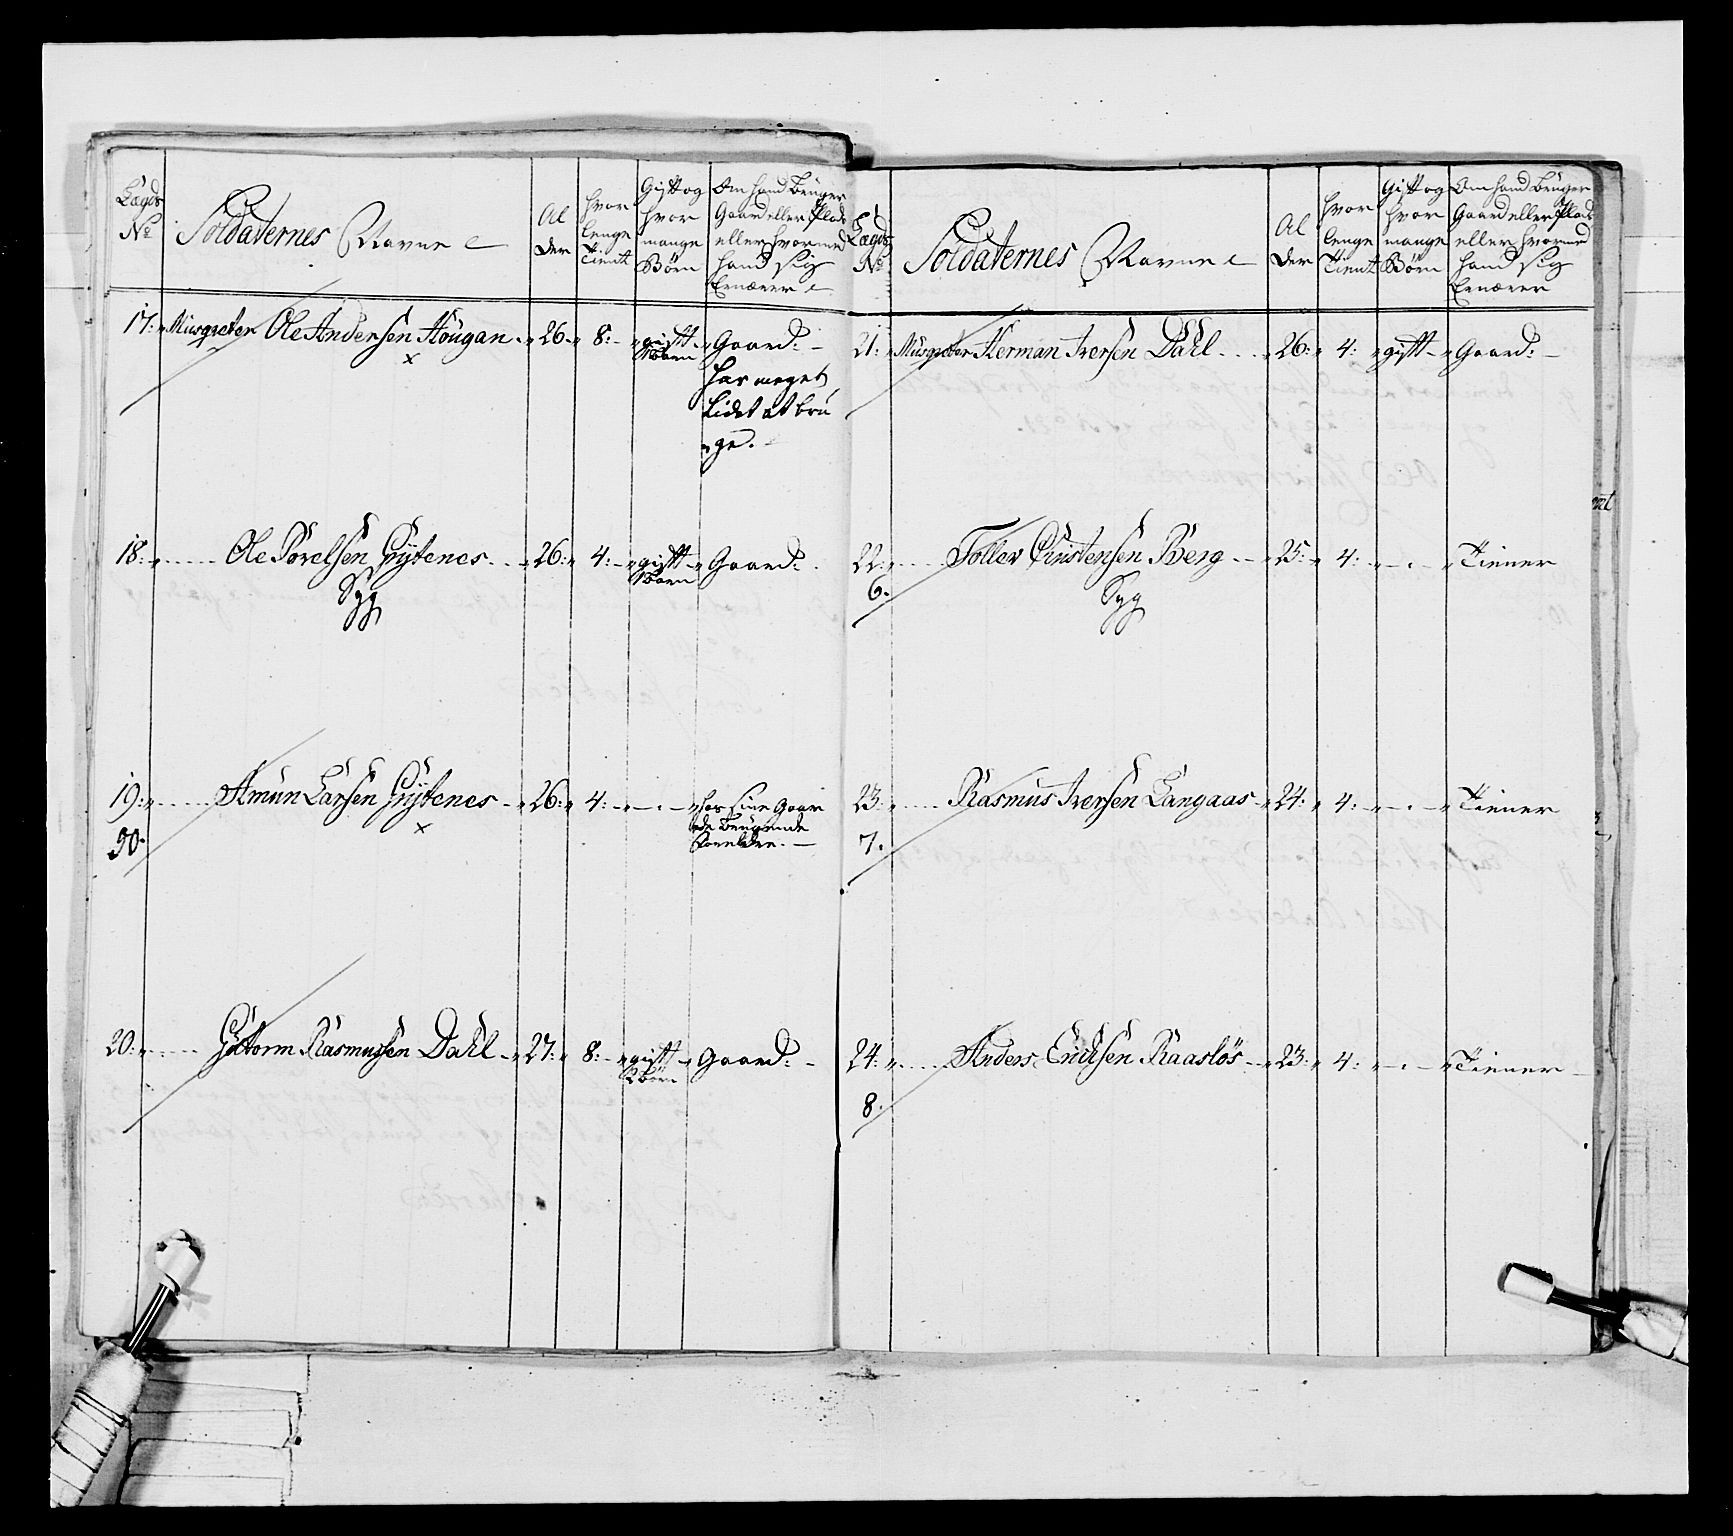 Lægds No | Soldaternes Navne | Al der | hvor lenge Tient | Gift og hvor mange Börn | Om hand bruger Gaard eller Plads eller hvormed hand sig Ernærer
17: Musqveter Ole Andersen Hougan 26 8: gift Börn Gaard:
x
har meget
lidet at bru
ge.
18: Ole Törelsen Gÿtenes 26: 4: gift Börn Gaard:
Syg
19: Amun Larsen Gÿtenes 26: 4: har sine Gaar
90. x de brugende
Forældre.
20: Guttorm Rasmussen Dahl 27: 8: gift Gaard:
2 Börn
Lægds No | Soldaternes Navne | Al der | hvor lenge Tient | Gift og hvor mange Börn | Om hand bruger Gaard eller Plads eller hvormed hand sig Ernærer
21: Musqveter Herman Iversen Dahl 26: 4: gift Gaard:
22: Tollev Christensen Berg 25: 4: Tiener
6. Syg
23: Rasmus Iversen Langaas 24: 4: Tiener
7.
24: Anders Erichsen Raaslös 23: 4: Tiener
8.